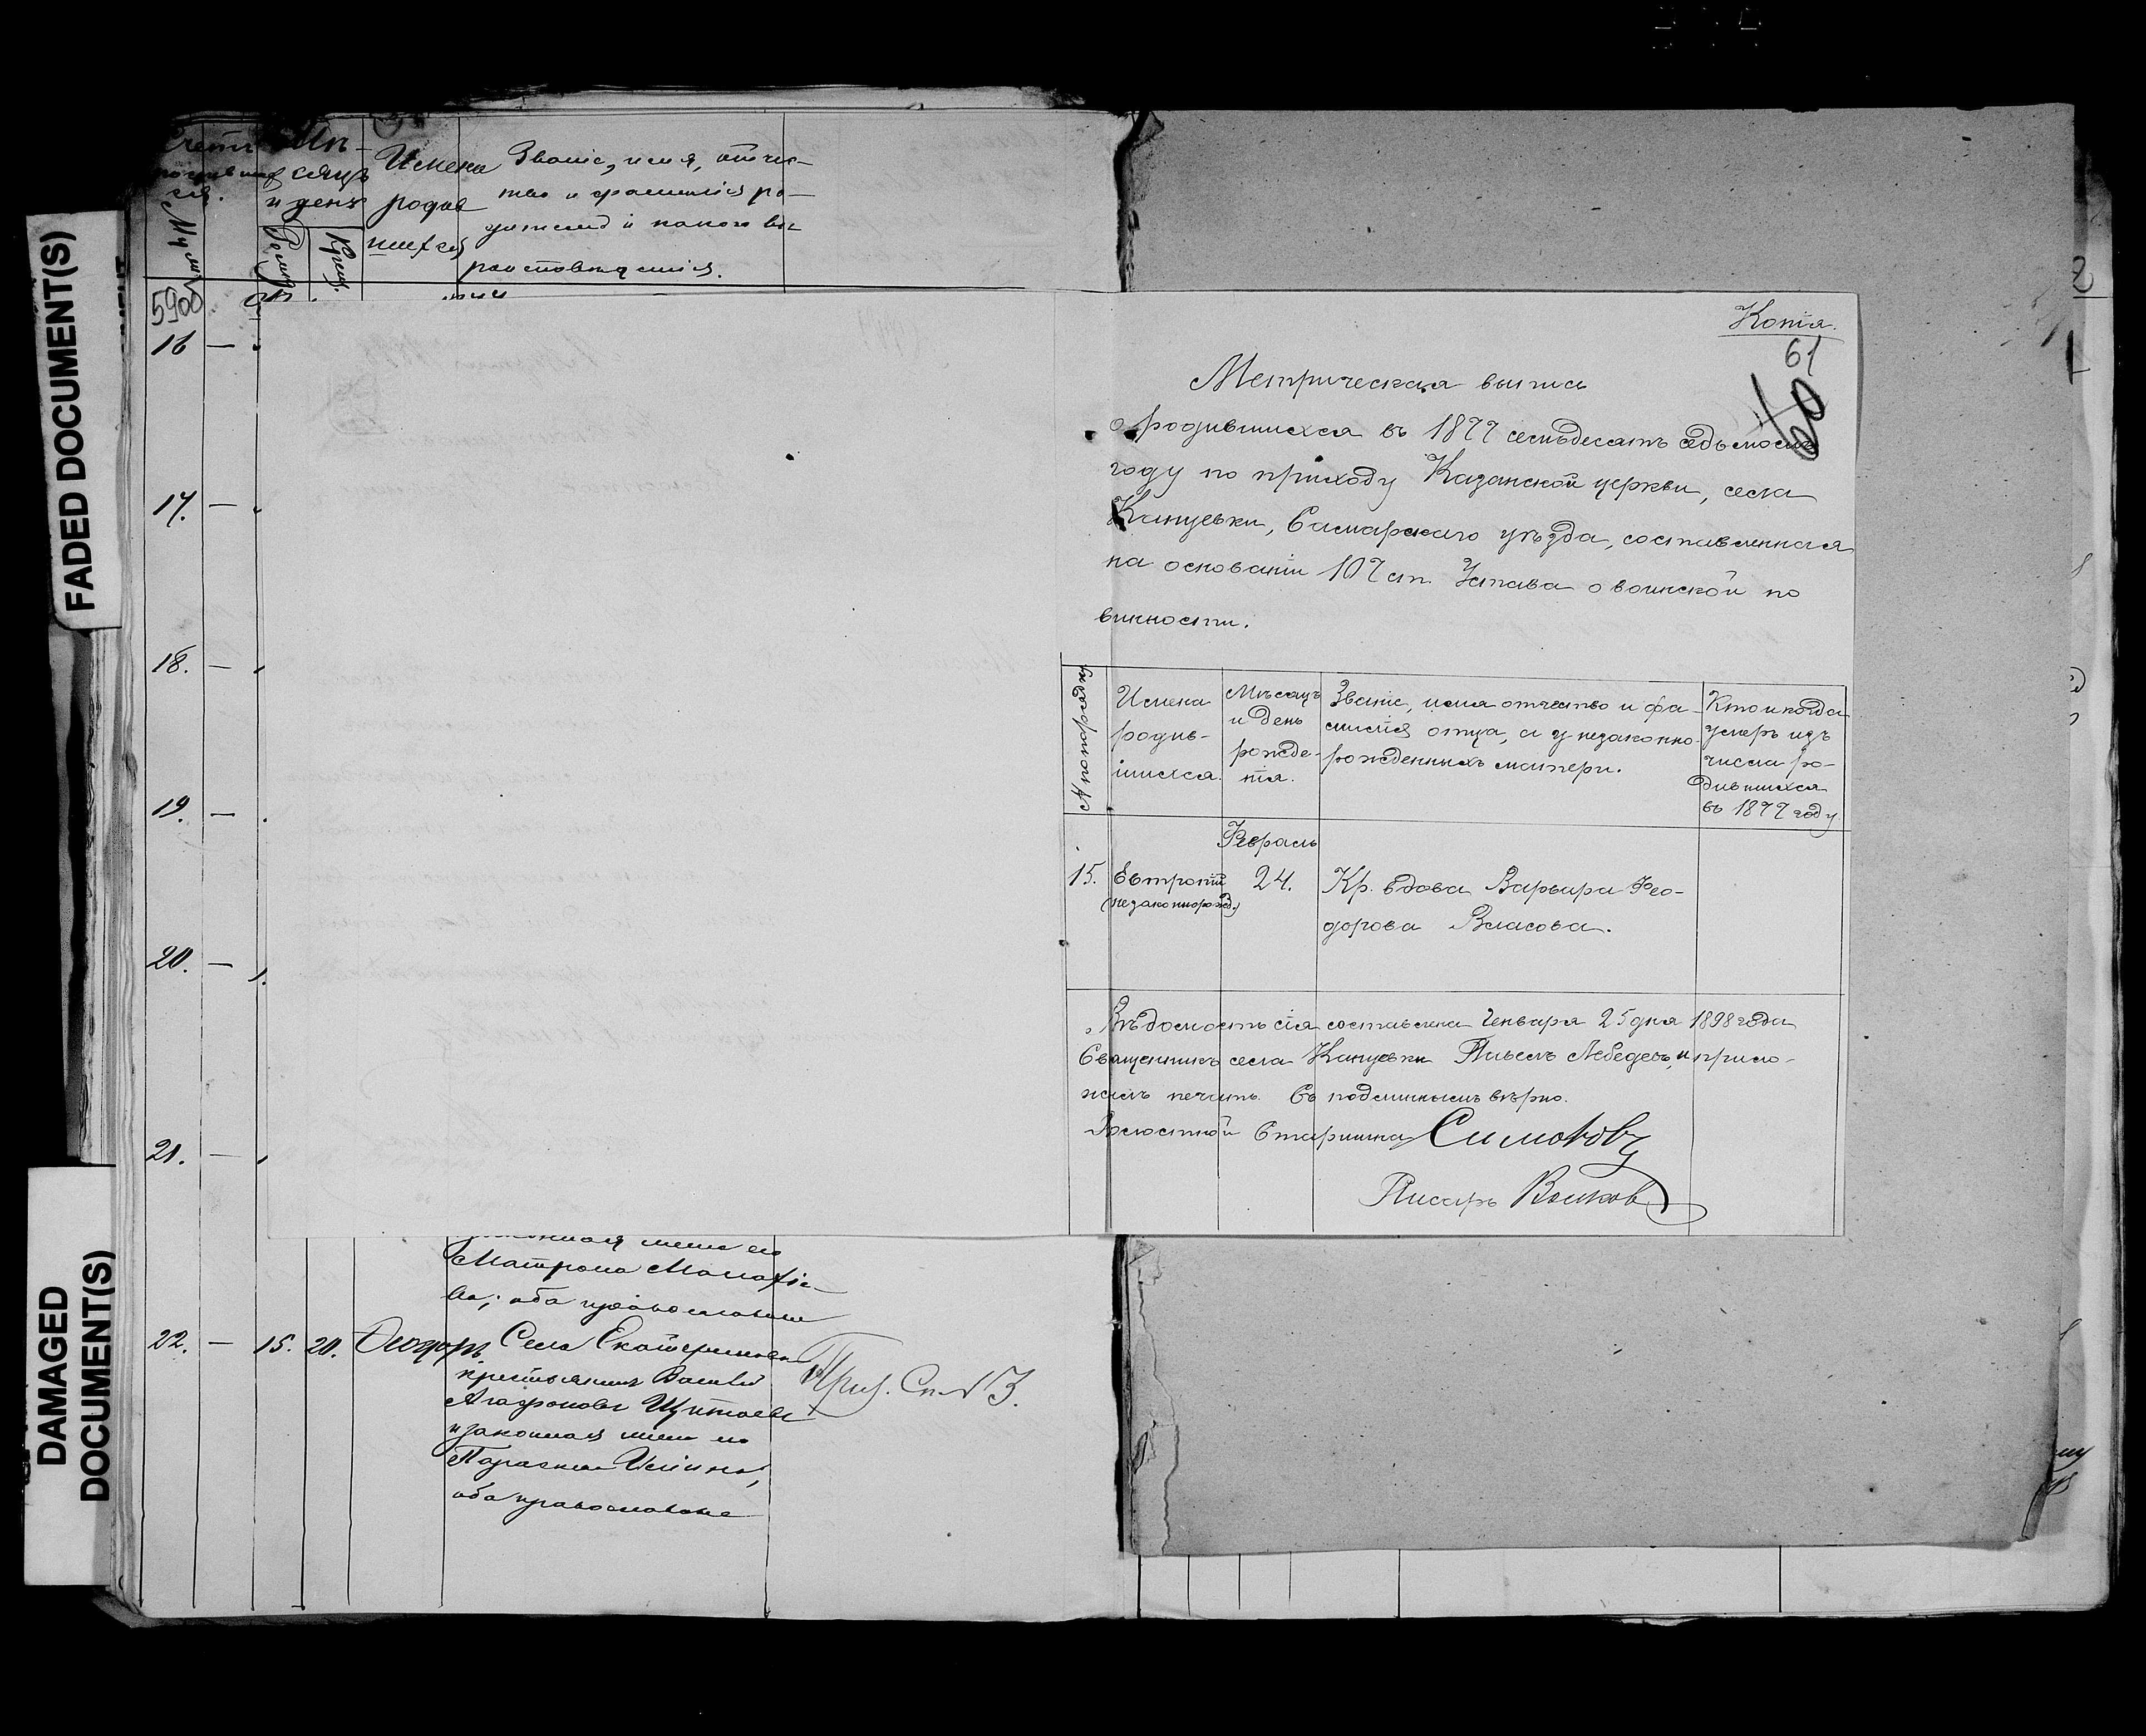 FADED DOCUMENT(S)
DAMAGED
DOCUMENT(S)
Мѣ-
сяцъ
и день
Имена
родив
шихся
Званіе, имя, отчес-
тво и фамилія ро-
дителей и какого вѣ-
роисповѣданія.
5900
16 —
17. —
18. —
19. —
20. —
21. —
Матрона
ва; оба православные
22. — 15. 20. Ѳеодоръ Села Екатериновки
крестьянинъ
Агафоновъ
и законная жена его
оба православные
Приз. Сп. № 3.
Копія.
61
60
Метрическая выпись
о родившихся въ 1877 семьдесятъ седьмомъ
году по приходу Казанской церкви, села
Кануевки, Самарскаго уѣзда, составленная
на основаніи 107 ст. Устава о воинской по
винности.
Имена
родив-
шихся.
Мѣсяцъ
и день
рожде-
нія.
Званіе, имя отчество и фа-
милія отца, а у незаконно-
рожденныхъ матери.
Кто и когда
умеръ изъ
числа ро-
дившихся
въ 1877 году
Февраль
15. Евтропій 24. Кр. вдова Варвара Ѳео-
(незаконнорожд.)
дорова Власова.
Вѣдомость сія составлена Генваря 25 дня 1898 года
Священникъ села Кануевки Павелъ Лебедевъ, и прило-
жилъ печать. Съ подлиннымъ вѣрно.
Волостной Старшина Симоновъ
Писарь Волков